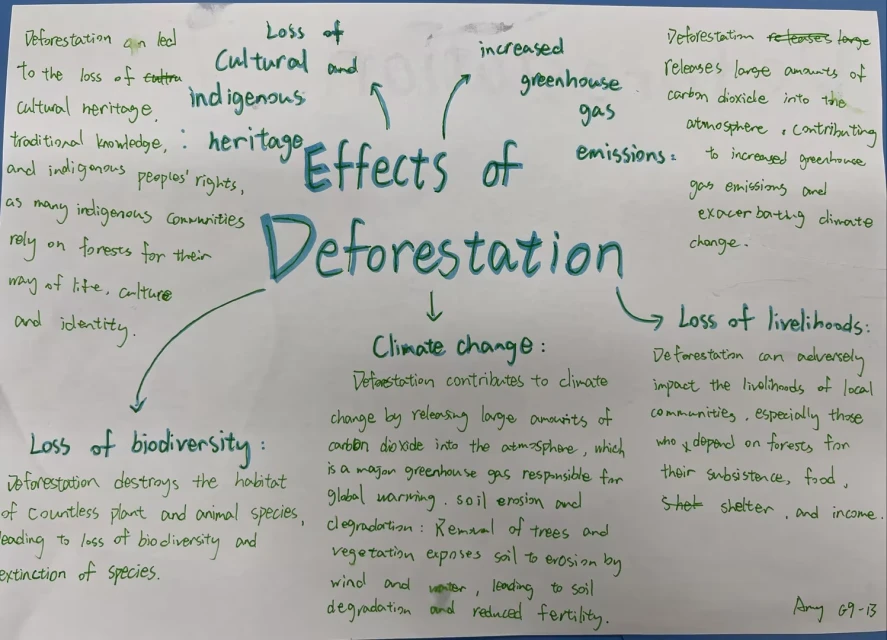 Effects of
Deforestation
Loss of
Cultural and
indigenous
heritage :
Deforestation can led
to the loss of
cultural heritage,
traditional knowledge,
and indigenous peoples' rights,
as many indigenous communities
rely on forests for their
way of life, culture
and identity.
increased
greenhouse
gas
emissions:
Deforestation releases large
releases large amounts of
carbon dioxide into the
atmosphere, contributing
to increased greenhouse
gas emissions and
exacerbating climate
change.
Loss of biodiversity:
Deforestation destroys the habitat
of countless plant and animal species,
leading to loss of biodiversity and
extinction of species.
Climate change:
Deforestation contributes to climate
change by releasing large amounts of
carbon dioxide into the atmosphere, which
is a major greenhouse gas responsible for
global warming. soil erosion and
degradation: Removal of trees and
vegetation exposes soil to erosion by
wind and water, leading to soil
degradation and reduced fertility.
Loss of livelihoods:
Deforestation can adversely
impact the livelihoods of local
communities, especially those
who depend on forests for
their subsistence, food,
shelter, and income.
Amy G9-13